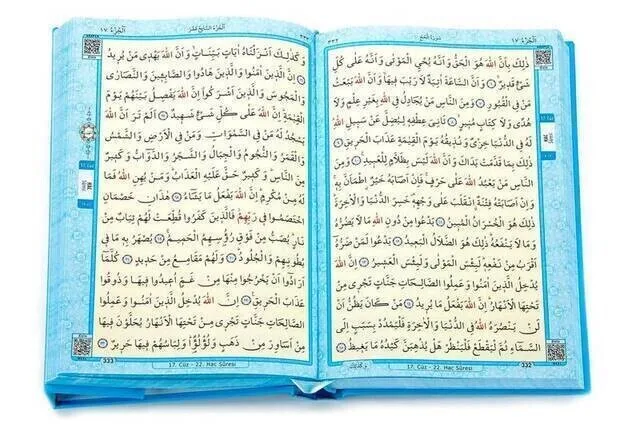 الجزء ١٧
سورة الحج
٣٣٢
ذلك بأن الله هو الحق وأنه يحيي الموتى وأنه على كل
شيء قدير ﴿٦﴾ وأن الساعة آتية لا ريب فيها وأن الله يبعث
من في القبور ﴿٧﴾ ومن الناس من يجادل في الله بغير علم ولا
هدى ولا كتاب منير ﴿٨﴾ ثاني عطفه ليضل عن سبيل الله
له في الدنيا خزي ونذيقه يوم القيمة عذاب الحريق ﴿٩﴾
ذلك بما قدمت يداك وأن الله ليس بظلام للعبيد ﴿١٠﴾ ومن
الناس من يعبد الله على حرف فإن أصابه خير اطمأن به
وإن أصابته فتنة انقلب على وجهه خسر الدنيا والآخرة
ذلك هو الخسران المبين ﴿١١﴾ يدعوا من دون الله ما لا يضره
وما لا ينفعه ذلك هو الضلال البعيد ﴿١٢﴾ يدعوا لمن ضره
أقرب من نفعه لبئس المولى ولبئس العشير ﴿١٣﴾ إن الله
يدخل الذين آمنوا وعملوا الصالحات جنات تجري من
تحتها الأنهار إن الله يفعل ما يريد ﴿١٤﴾ من كان يظن أن
لن ينصره الله في الدنيا والآخرة فليمدد بسبب إلى
السماء ثم ليقطع فلينظر هل يذهبن كيده ما يغيظ ﴿١٥﴾
وكذلك
17. Cüz - 22. Hac Sûresi
332
الجزء ١٧
الجزء السابع عشر
٣٣٣
وكذلك أنزلناه آيات بينات وأن الله يهدي من يريد
﴿١٦﴾ إن الذين آمنوا والذين هادوا والصابئين والنصارى
والمجوس والذين أشركوا إن الله يفصل بينهم يوم
القيمة إن الله على كل شيء شهيد ﴿١٧﴾ ألم تر أن الله
يسجد له من في السموات ومن في الأرض والشمس
والقمر والنجوم والجبال والشجر والدواب وكثير
من الناس وكثير حق عليه العذاب ومن يهن الله فما
له من مكرم إن الله يفعل ما يشاء ﴿١٨﴾ هذان خصمان
اختصموا في ربهم فالذين كفروا قطعت لهم ثياب من
نار يصب من فوق رؤسهم الحميم ﴿١٩﴾ يصهر به ما في
بطونهم والجلود ﴿٢٠﴾ ولهم مقامع من حديد ﴿٢١﴾ كلما
أرادوا أن يخرجوا منها من غم أعيدوا فيها وذوقوا
عذاب الحريق ﴿٢٢﴾ إن الله يدخل الذين آمنوا وعملوا
الصالحات جنات تجري من تحتها الأنهار يحلون فيها
من أساور من ذهب ولؤلؤا ولباسهم فيها حرير ﴿٢٣﴾
17. Cüz - 22. Hac Sûresi
333